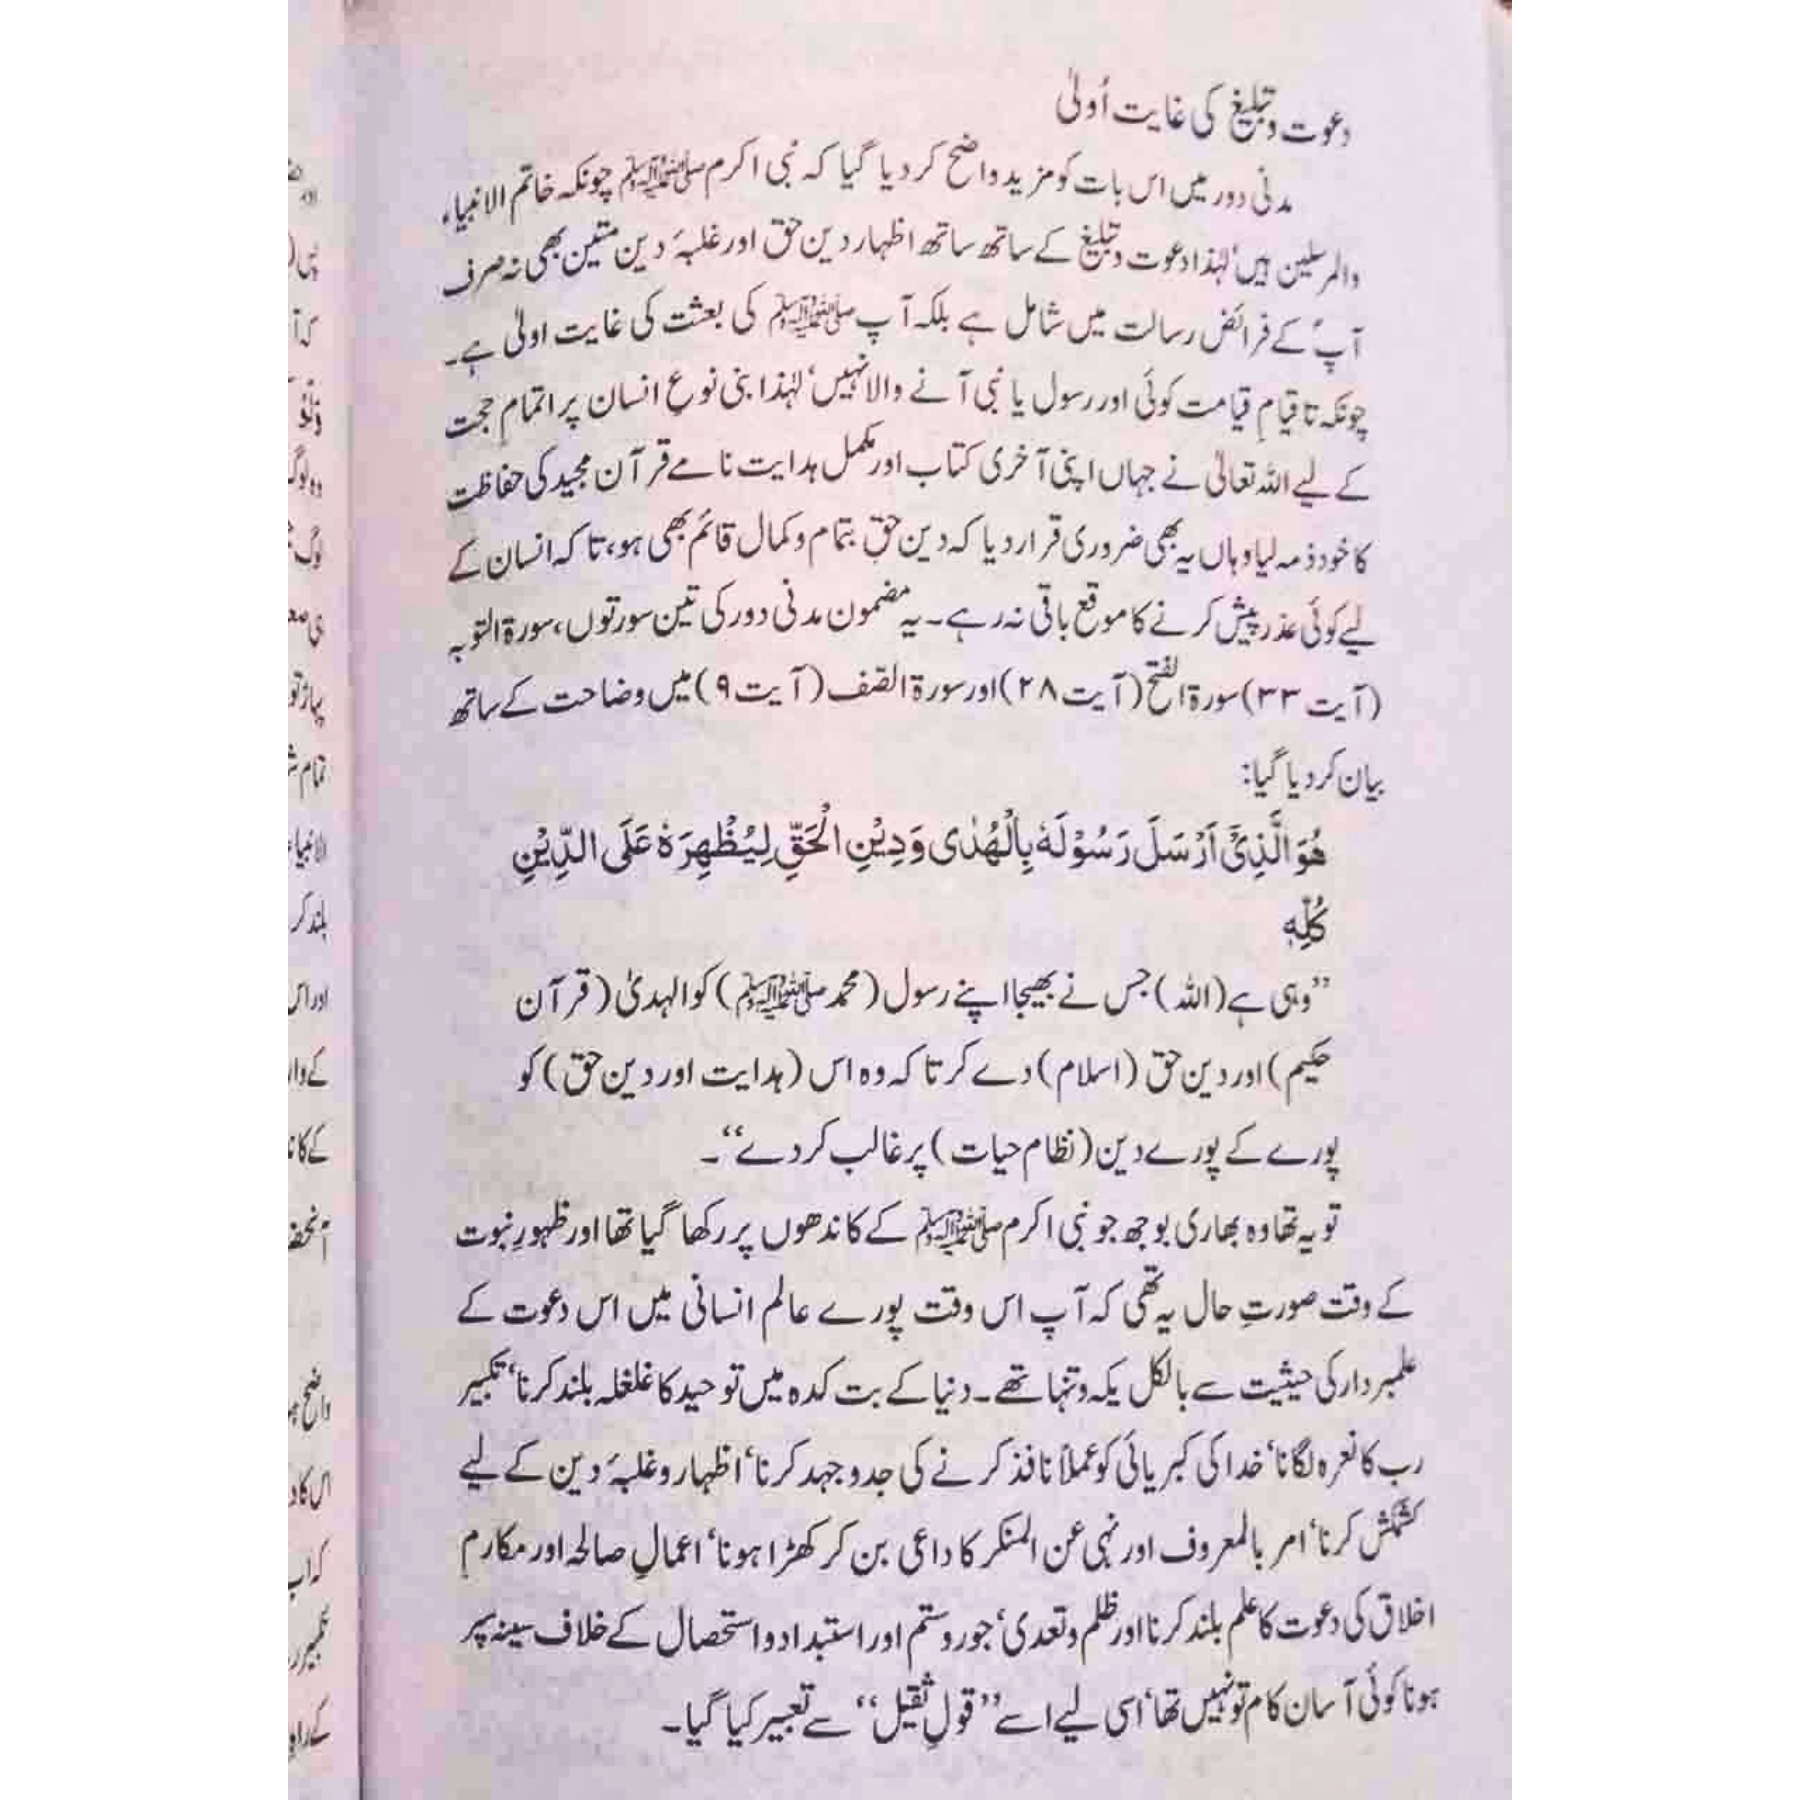 دعوت و تبلیغ کی غایت اُولیٰ
مدنی دور میں اس بات کو مزید واضح کر دیا گیا کہ نبی اکرم ﷺ چونکہ خاتم الانبیاء
والمرسلین ہیں‘ لہٰذا دعوت و تبلیغ کے ساتھ ساتھ اظہار دین حق اور غلبۂ دین متین بھی نہ صرف
آپؐ کے فرائض رسالت میں شامل ہے بلکہ آپ ﷺ کی بعثت کی غایت اولیٰ ہے۔
چونکہ تا قیامِ قیامت کوئی اور رسول یا نبی آنے والا نہیں‘ لہٰذا بنی نوعِ انسان پر اتمامِ حجت
کے لیے اللہ تعالیٰ نے جہاں اپنی آخری کتاب اور مکمل ہدایت نامے قرآن مجید کی حفاظت
کا خود ذمہ لیا وہاں یہ بھی ضروری قرار دیا کہ دین حق بتمام و کمال قائم بھی ہو، تا کہ انسان کے
لیے کوئی عذر پیش کرنے کا موقع باقی نہ رہے۔ یہ مضمون مدنی دور کی تین سورتوں، سورۃ التوبہ
(آیت ۳۳) سورۃ الفتح (آیت ۲۸) اور سورۃ الصّف (آیت ۹) میں وضاحت کے ساتھ
بیان کر دیا گیا:
هُوَ الَّذِیْۤ اَرْسَلَ رَسُوْلَهٗ بِالْهُدٰی وَدِیْنِ الْحَقِّ لِیُظْهِرَهٗ عَلَی الدِّیْنِ
كُلِّهٖ
”وہی ہے (اللہ) جس نے بھیجا اپنے رسول (محمد ﷺ) کو الہدیٰ (قرآن
حکیم) اور دین حق (اسلام) دے کر تا کہ وہ اس (ہدایت اور دین حق) کو
پورے کے پورے دین (نظام حیات) پر غالب کر دے“۔
تو یہ تھا وہ بھاری بوجھ جو نبی اکرم ﷺ کے کاندھوں پر رکھا گیا تھا اور ظہورِ نبوت
کے وقت صورتِ حال یہ تھی کہ آپ اس وقت پورے عالم انسانی میں اس دعوت کے
علمبردار کی حیثیت سے بالکل یکہ و تنہا تھے۔ دنیا کے بت کدہ میں توحید کا غلغلہ بلند کرنا‘ تکبیر
رب کا نعرہ لگانا‘ خدا کی کبریائی کو عملاً نافذ کرنے کی جدوجہد کرنا‘ اظہار و غلبۂ دین کے لیے
کشمکش کرنا‘ امر بالمعروف اور نہی عن المنکر کا داعی بن کر کھڑا ہونا‘ اعمالِ صالحہ اور مکارمِ
اخلاق کی دعوت کا علم بلند کرنا اور ظلم و تعدی‘ جور و ستم اور استبداد و استحصال کے خلاف سینہ سپر
ہونا کوئی آسان کام تو نہیں تھا‘ اسی لیے اسے ”قولِ ثقیل“ سے تعبیر کیا گیا۔